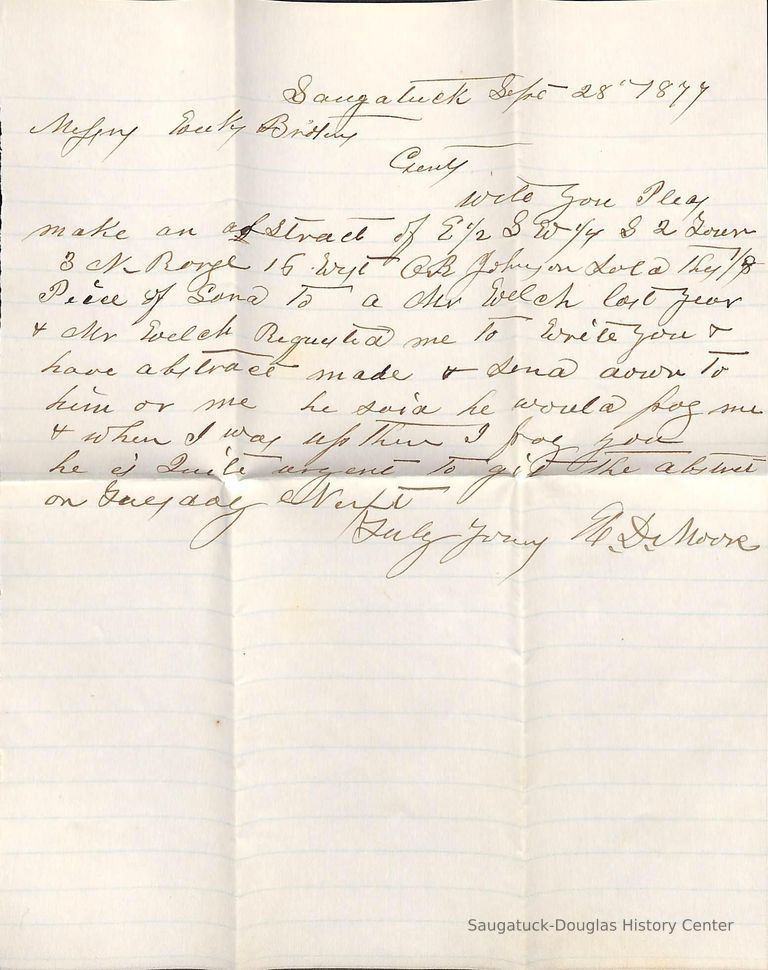 Saugatuck Sept 28th 1877
Messrs Brothers
Gents
will you Pleas
make an abstract of E 1/2 S W 1/4 S 2 Town
3 N Range 16 West O R Johnson Sold this 1/8
Peice of Land to a Mr Welch last year
& Mr Welch Requested me to Write you &
have abstract made & send down to
him or me he said he would pay me
& when I was up there I pay you
he is Quite urgent to git the abstract
on Tuesday Next
Truly Yours H. D. Moore
Saugatuck-Douglas History Center